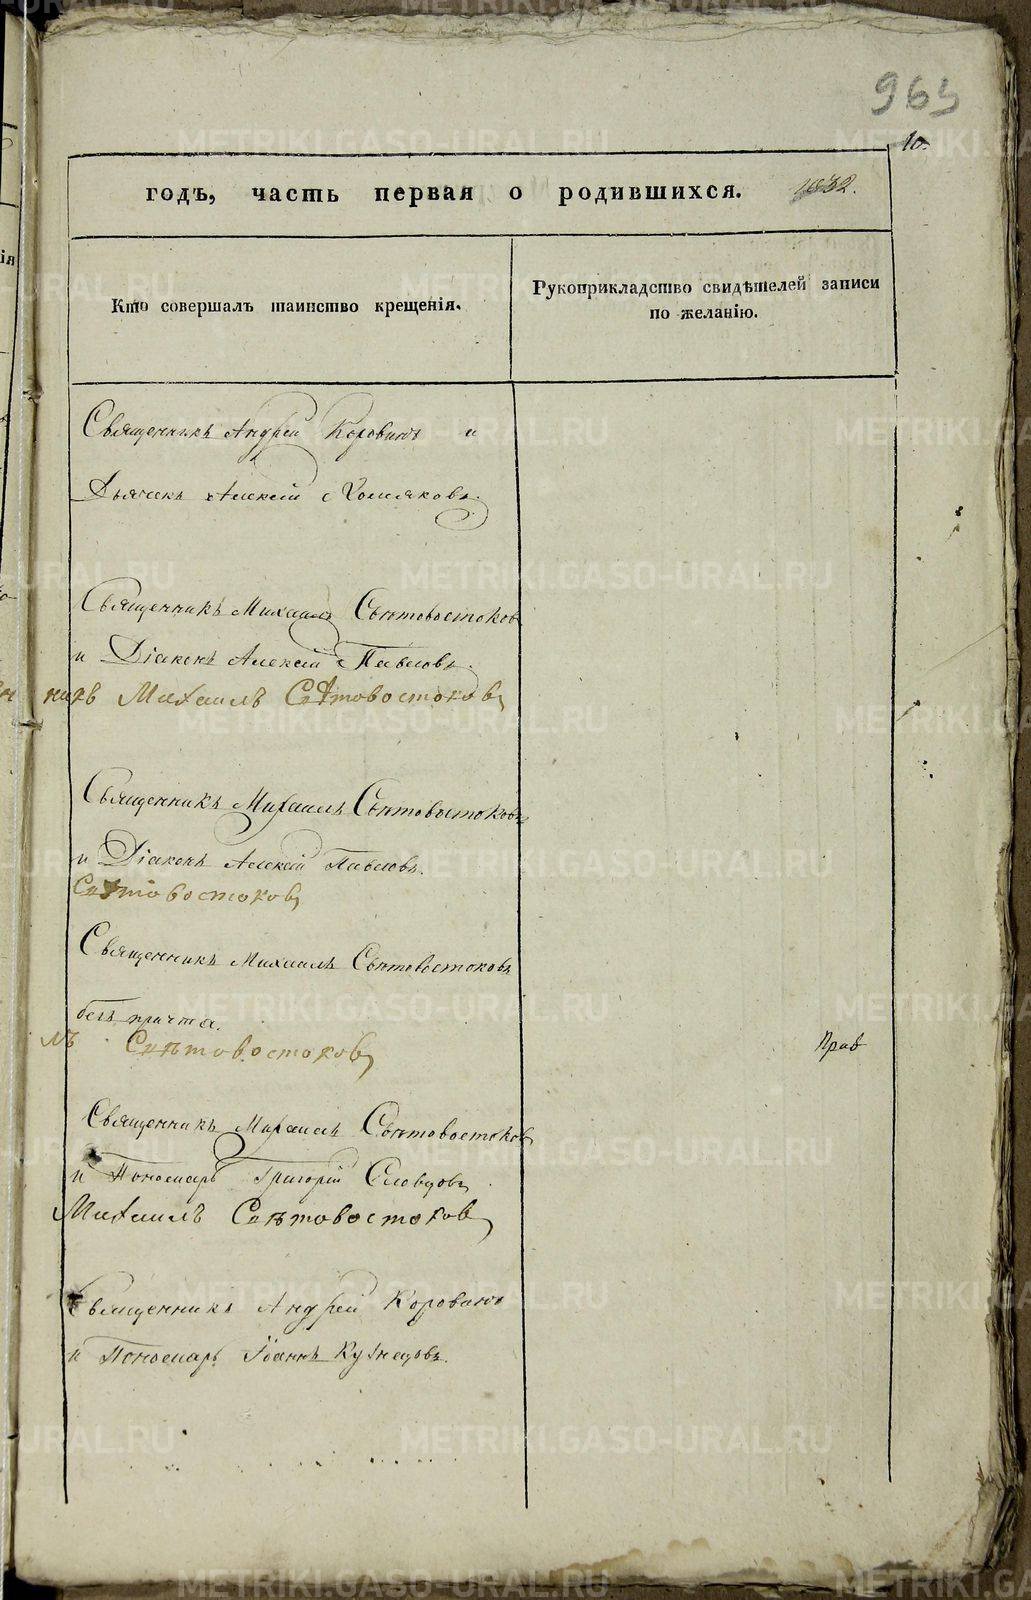 963
10.
годъ, часть первая о родившихся. 1832.
Кто совершалъ таинство крещенія.
Рукоприкладство свидѣтелей записи
по желанію.
Священникъ Андрей Коровинъ и
Дьячекъ Алексій Хомяковъ.
Священникъ Михаилъ Свѣтовостоковъ
и Діаконъ Алексій Павловъ.
никъ Михаилъ Свѣтовостоковъ
Священникъ Михаилъ Свѣтовостоковъ
и Діаконъ Алексій Павловъ.
Свѣтовостоковъ
Священникъ Михаилъ Свѣтовостоковъ
безъ причта.
лъ Свѣтовостоковъ
Прав
Священникъ Михаилъ Свѣтовостоковъ
и Пономарь Григорій Словцовъ
Михаилъ Свѣтовостоковъ
Священникъ Андрей Коровинъ
и Пономарь Іоаннъ Кузнецовъ.
METRIKI.GASO-URAL.RU